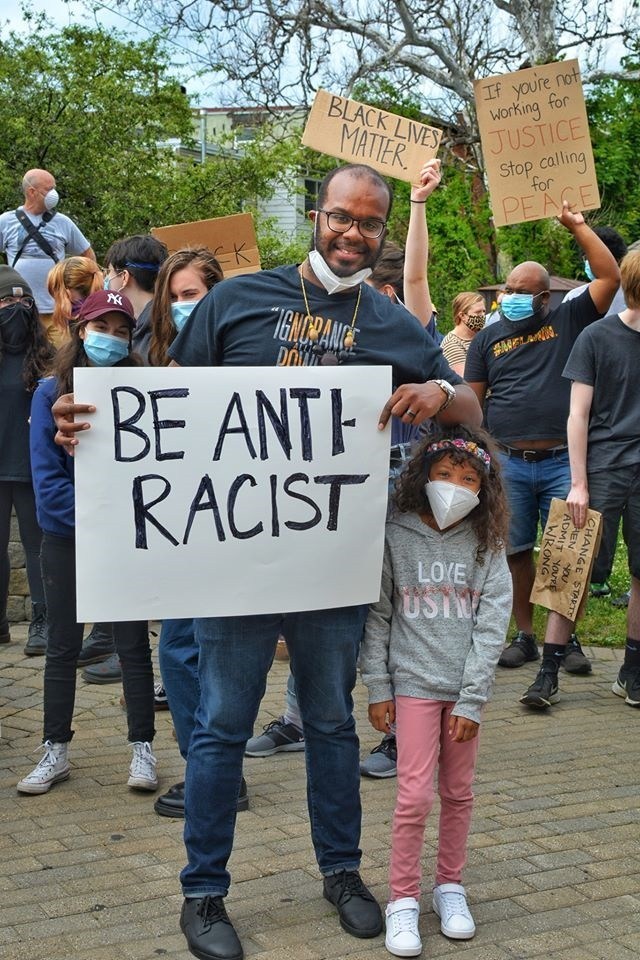 BLACK LIVES
MATTER
If you're not
working for
JUSTICE
Stop calling
for
PEACE
CK
NY
"IGNORANCE
BE ANTI-
RACIST
LOVE
CHANGE
WHEN YOU
ADMIT YOU'RE
WRONG